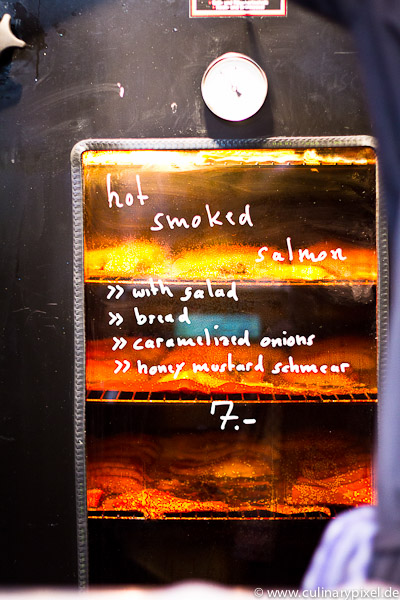 hot
smoked
salmon
>> with salad
>> bread
>> caramelized onions
>> honey mustard schmear
7.-
© www.culinarypixel.de